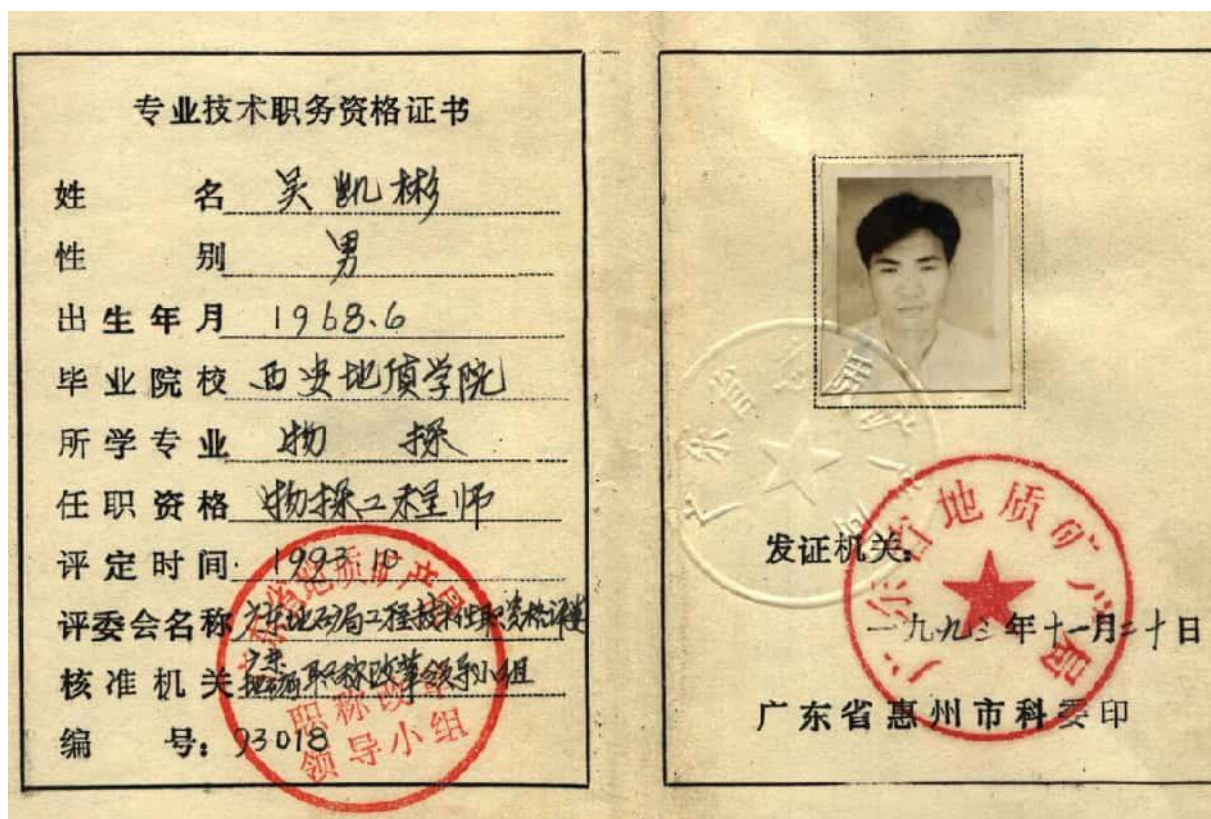 专业技术职务资格证书
姓 名 吴凯彬
性 别 男
出生年月 1968.6
毕业院校 西安地质学院
所学专业 物探
任职资格 物探工程师
评定时间 1993.10
评委会名称 广东地矿局工程技术任职资格评委
核准机关 广东地矿局职称改革领导小组
编 号：93018
广东省地质矿产局
职称改革
领导小组
发证机关：
广东省地质矿产局
一九九三年十一月二十日
广东省惠州市科委印